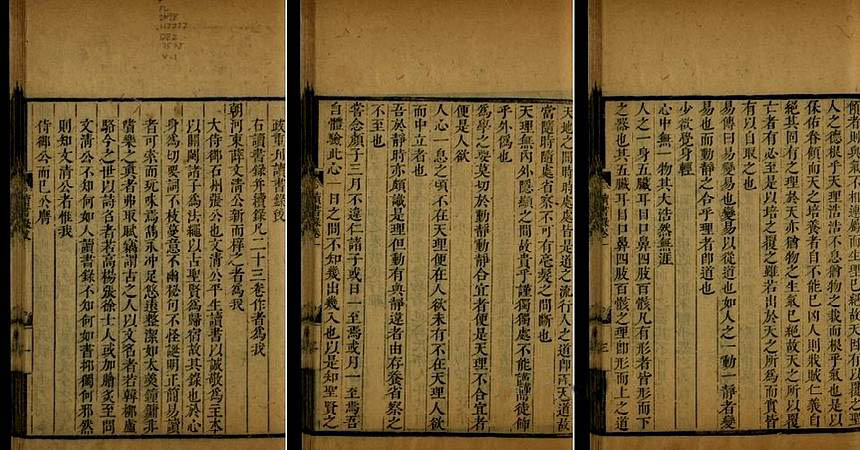 政重刊讀書錄後
右讀書錄并續錄凡二十三卷作者爲我
朝河東薛文清公新而梓之者爲我
大侍御石州張公也文清公平生讀書以誠敬爲主本
以關閩諸子爲法繩以古聖賢爲歸宿故其錄也於心
身爲切要詞不枝蔓意不幽秘句不怪謎明正簡易讀
者可索而玩味焉雋永冲足悠遠整潔如太羹鉶鼐非
嗜樂之眞者弗取賦竊謂古之人以文名者若韓柳盧
駱今之世以詩名者若高楊張徐士人或加膾炙至問
文清公不知何如人讀書錄不知何如書抑獨何邪然
則知文清公者惟我
侍御公而已公膺
天地之間時時處處皆是道之流行人之道即天道故
當隨時隨處省察不可有毫髮之間斷也
天理無內外隱顯之間故貴乎謹獨獨處不能謹而徒飾
乎外僞也
爲學之要莫切於動靜動靜合宜者便是天理不合宜者
便是人欲
人心一息之頃不在天理便在人欲未有不在天理人欲
而中立者也
吾於靜時亦頗識是理但動有與靜違者由存養省察之
不至也
嘗念顏子三月不違仁諸子或日一至焉或月一至焉吾
自體驗此心一日之間不知幾出幾入也以是知聖賢之
人之德根乎天理浩浩不息猶物之栽而根乎氣也是以
保佑眷傾而天之培養者自不能已凶人則戕賊仁義自
絕其固有之理於天亦猶物之生氣已絕故天之所以覆
亡者有必至是以培之覆之雖若出於天之所爲而實皆
有以自取之也
易傳曰易變易也變易以從道也如人之一動一靜者變
易也而動靜之合乎理者即道也
少欲覺身輕
心中無一物其大浩然無涯
人之一身五臟耳目口鼻四肢百骸凡有形者皆形而下
之器也其五臟耳目口鼻四肢百骸之理即形而上之道